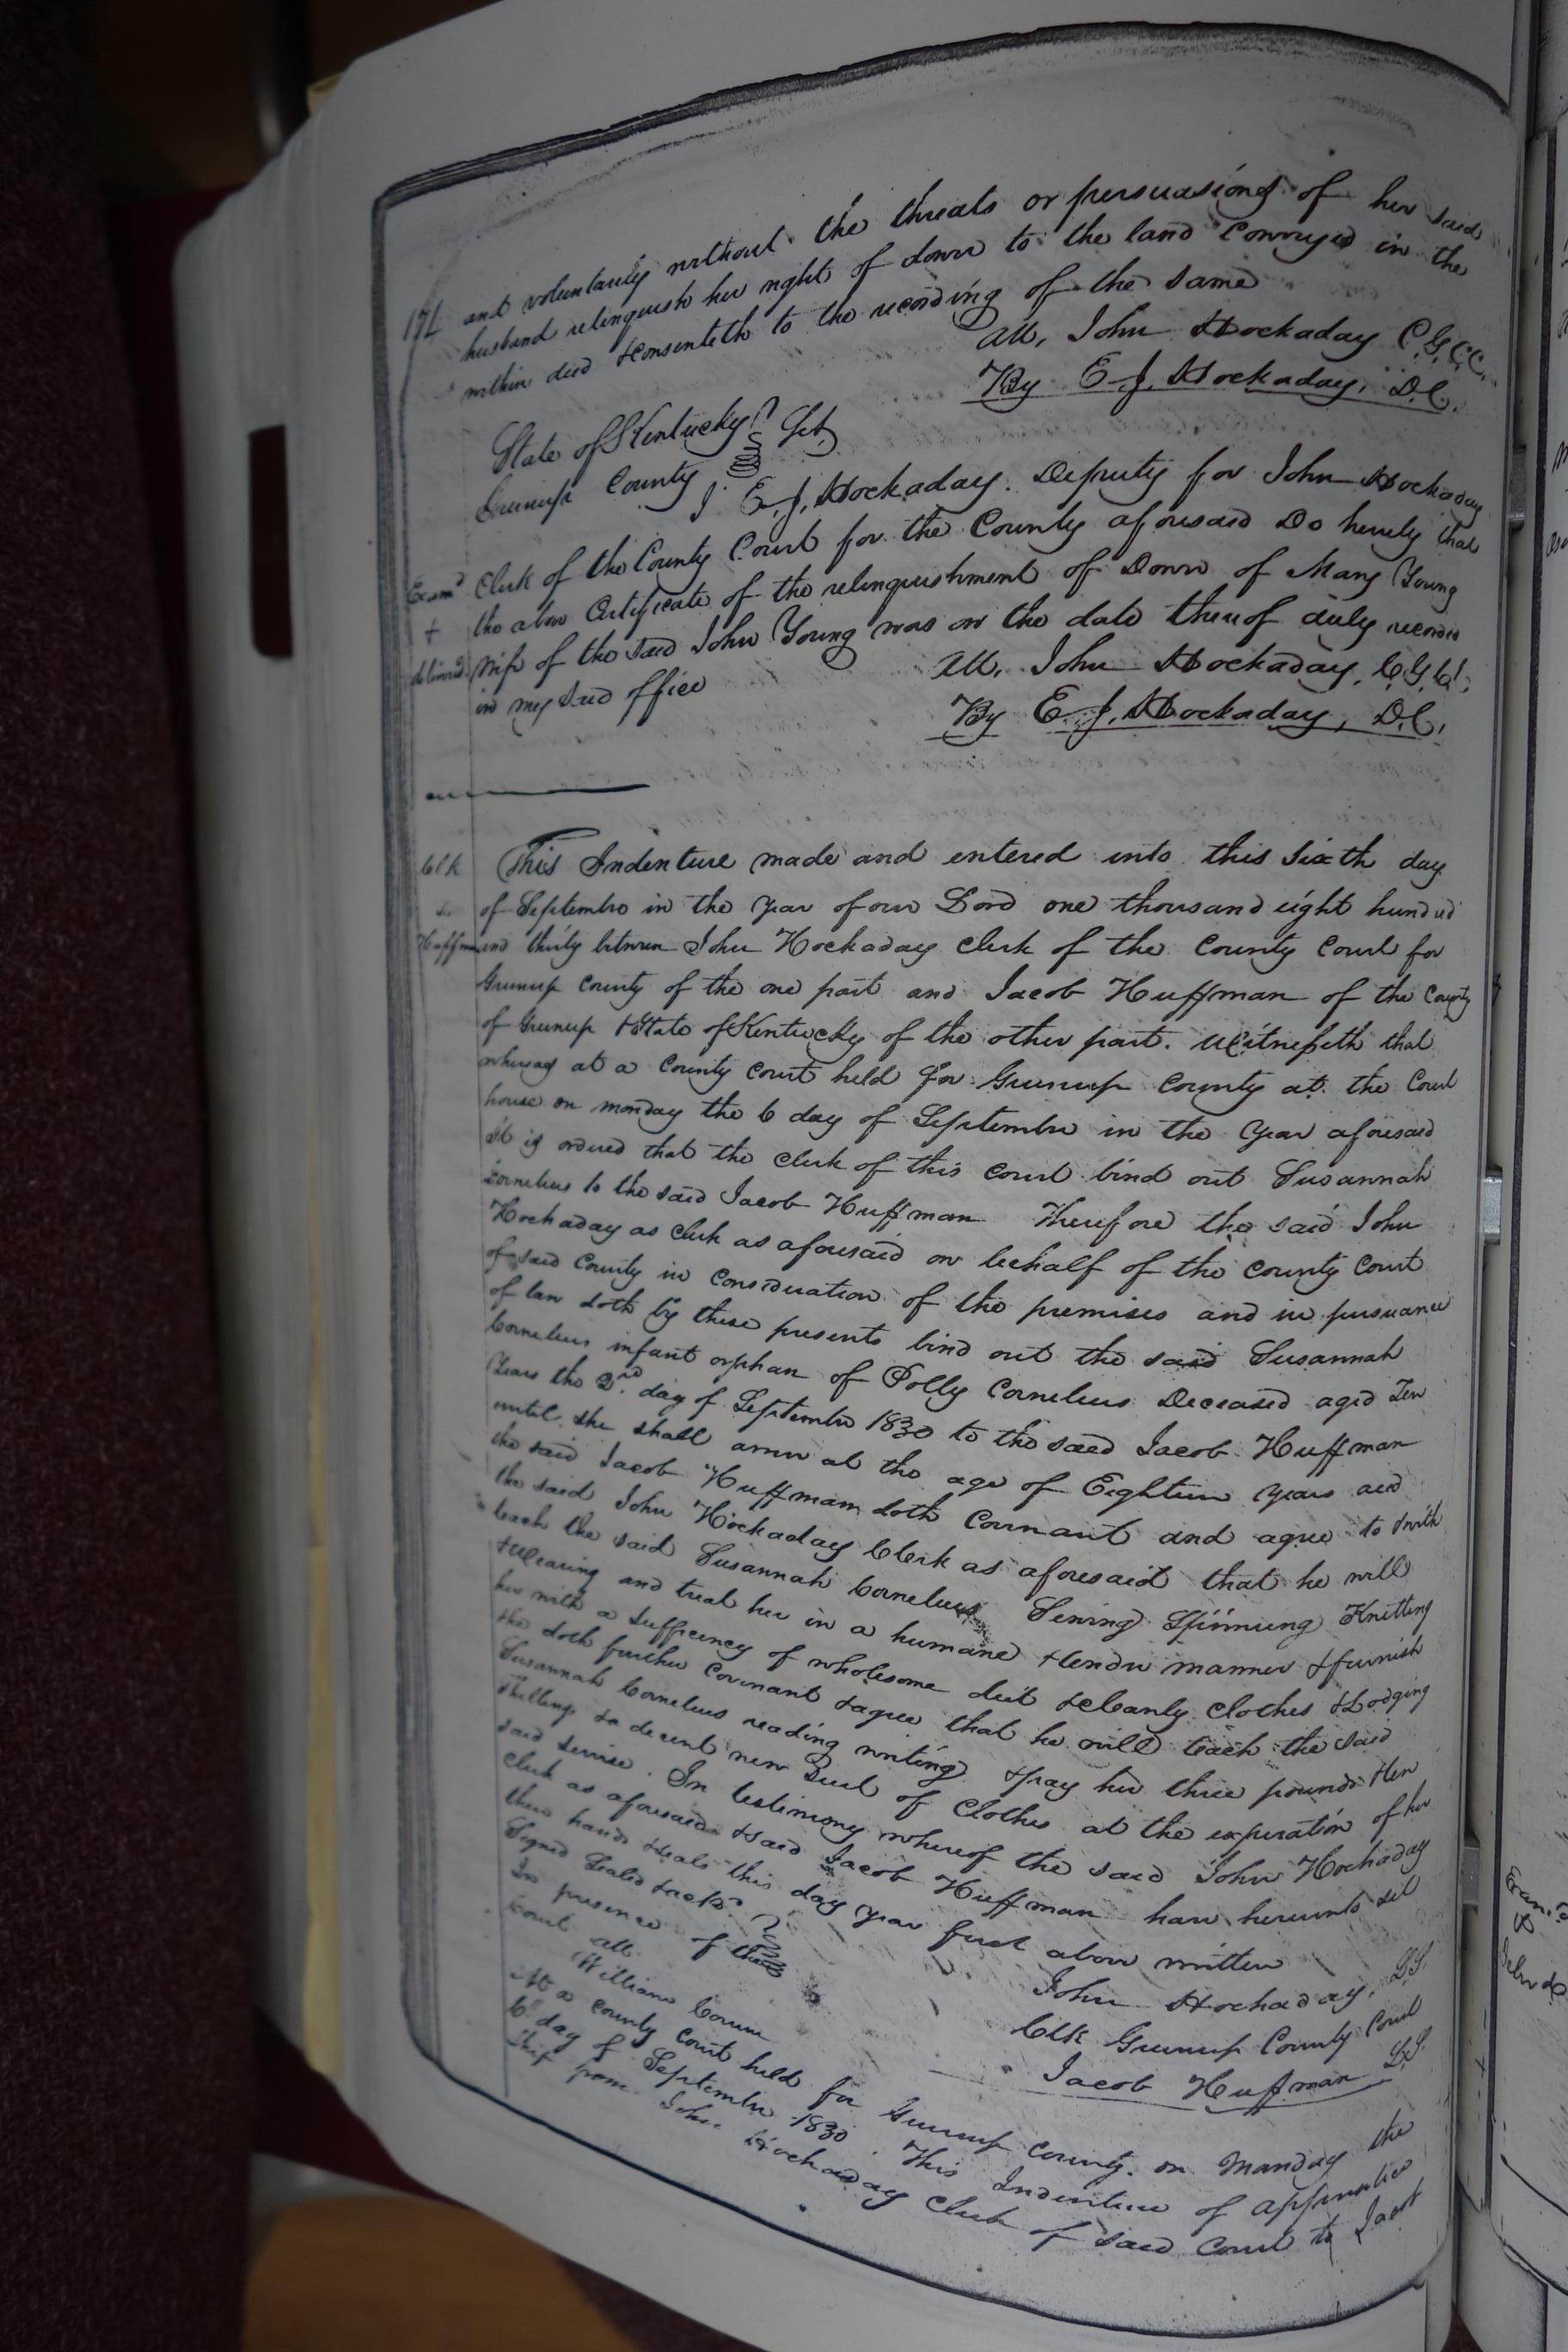 174 and voluntarily without the threats or persuasions of her said
husband relinquish her right of dower to the land Conveyed in the
within deed & consenteth to the recording of the same
Att, John Hockaday C.G.C.C.
By E. J. Hockaday, D.C.
State of Kentucky
Greenup County Sct
I E. J. Hockaday Deputy for John Hockaday
Clerk of the County Court for the County aforesaid Do hereby that
the above Certificate of the relinquishment of Dower of Mary Young
wife of the said John Young was on the date thereof duly recorded
in my said office
Exam'd
+
delivered
Att, John Hockaday, C.G.C.
By E. J. Hockaday, D.C.
Clk
to
Huffman
This Indenture made and entered into this Sixth day
of Septembr in the year of our Lord one thousand eight hundred
and thirty between John Hockaday Clerk of the County Court for
Greenup County of the one part and Jacob Huffman of the County
of Greenup & State of Kentucky of the other part. Witnesseth that
whereas at a County Court held for Greenup County at the Court
house on monday the 6 day of Septembr in the year aforesaid
It is ordered that the Clerk of this Court bind out Susannah
Cornelius to the said Jacob Huffman Therefore the said John
Hockaday as Clerk as aforesaid on behalf of the County Court
of said County in Consideration of the premises and in pursuance
of law doth by these presents bind out the said Susannah
Cornelius infant orphan of Polly Cornelius Deceased aged Ten
Years the 2nd day of Septembr 1830 to the said Jacob Huffman
until she shall arrive at the age of Eighteen years and
the said Jacob Huffmam doth Covenant and agree to & with
the said John Hockaday Clerk as aforesaid that he will
teach the said Susannah Cornelius Sewing Spinning Knitting
& Wearing and treat her in a humane & tender manner & furnish
her with a sufficency of wholesome diet & cleanly clothes & Lodging
He doth further Covenant & agree that he will teach the said
Susannah Cornelius reading writing & pay her three pounds & ten
Shillings & a decent new Suit of Clothes at the expiration of her
said service. In testimony whereof the said John Hockaday
Clerk as aforesaid & said Jacob Huffman have hereunto set
their hands & seals this day year first above written
Signed Sealed & ack'd
In presence of the
Court
att
William Corum
John Hockaday, L.S.
Clk Greenup County Court
Jacob Huffman L.S.
At a County Court held for Greenup County on Monday the
6th day of Septembr 1830. This Indenture of apprentice
ship from John Hockaday Clerk of said Court to Jacob
Exam'd
&